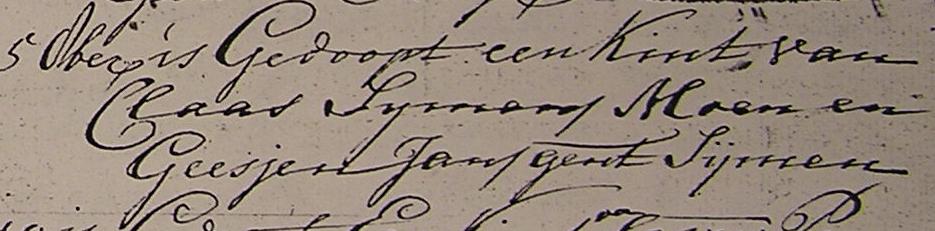 5 Ober is Gedoopt een Kint van
Claas Symens Moen en
Geesjen Jans gent Sijmen